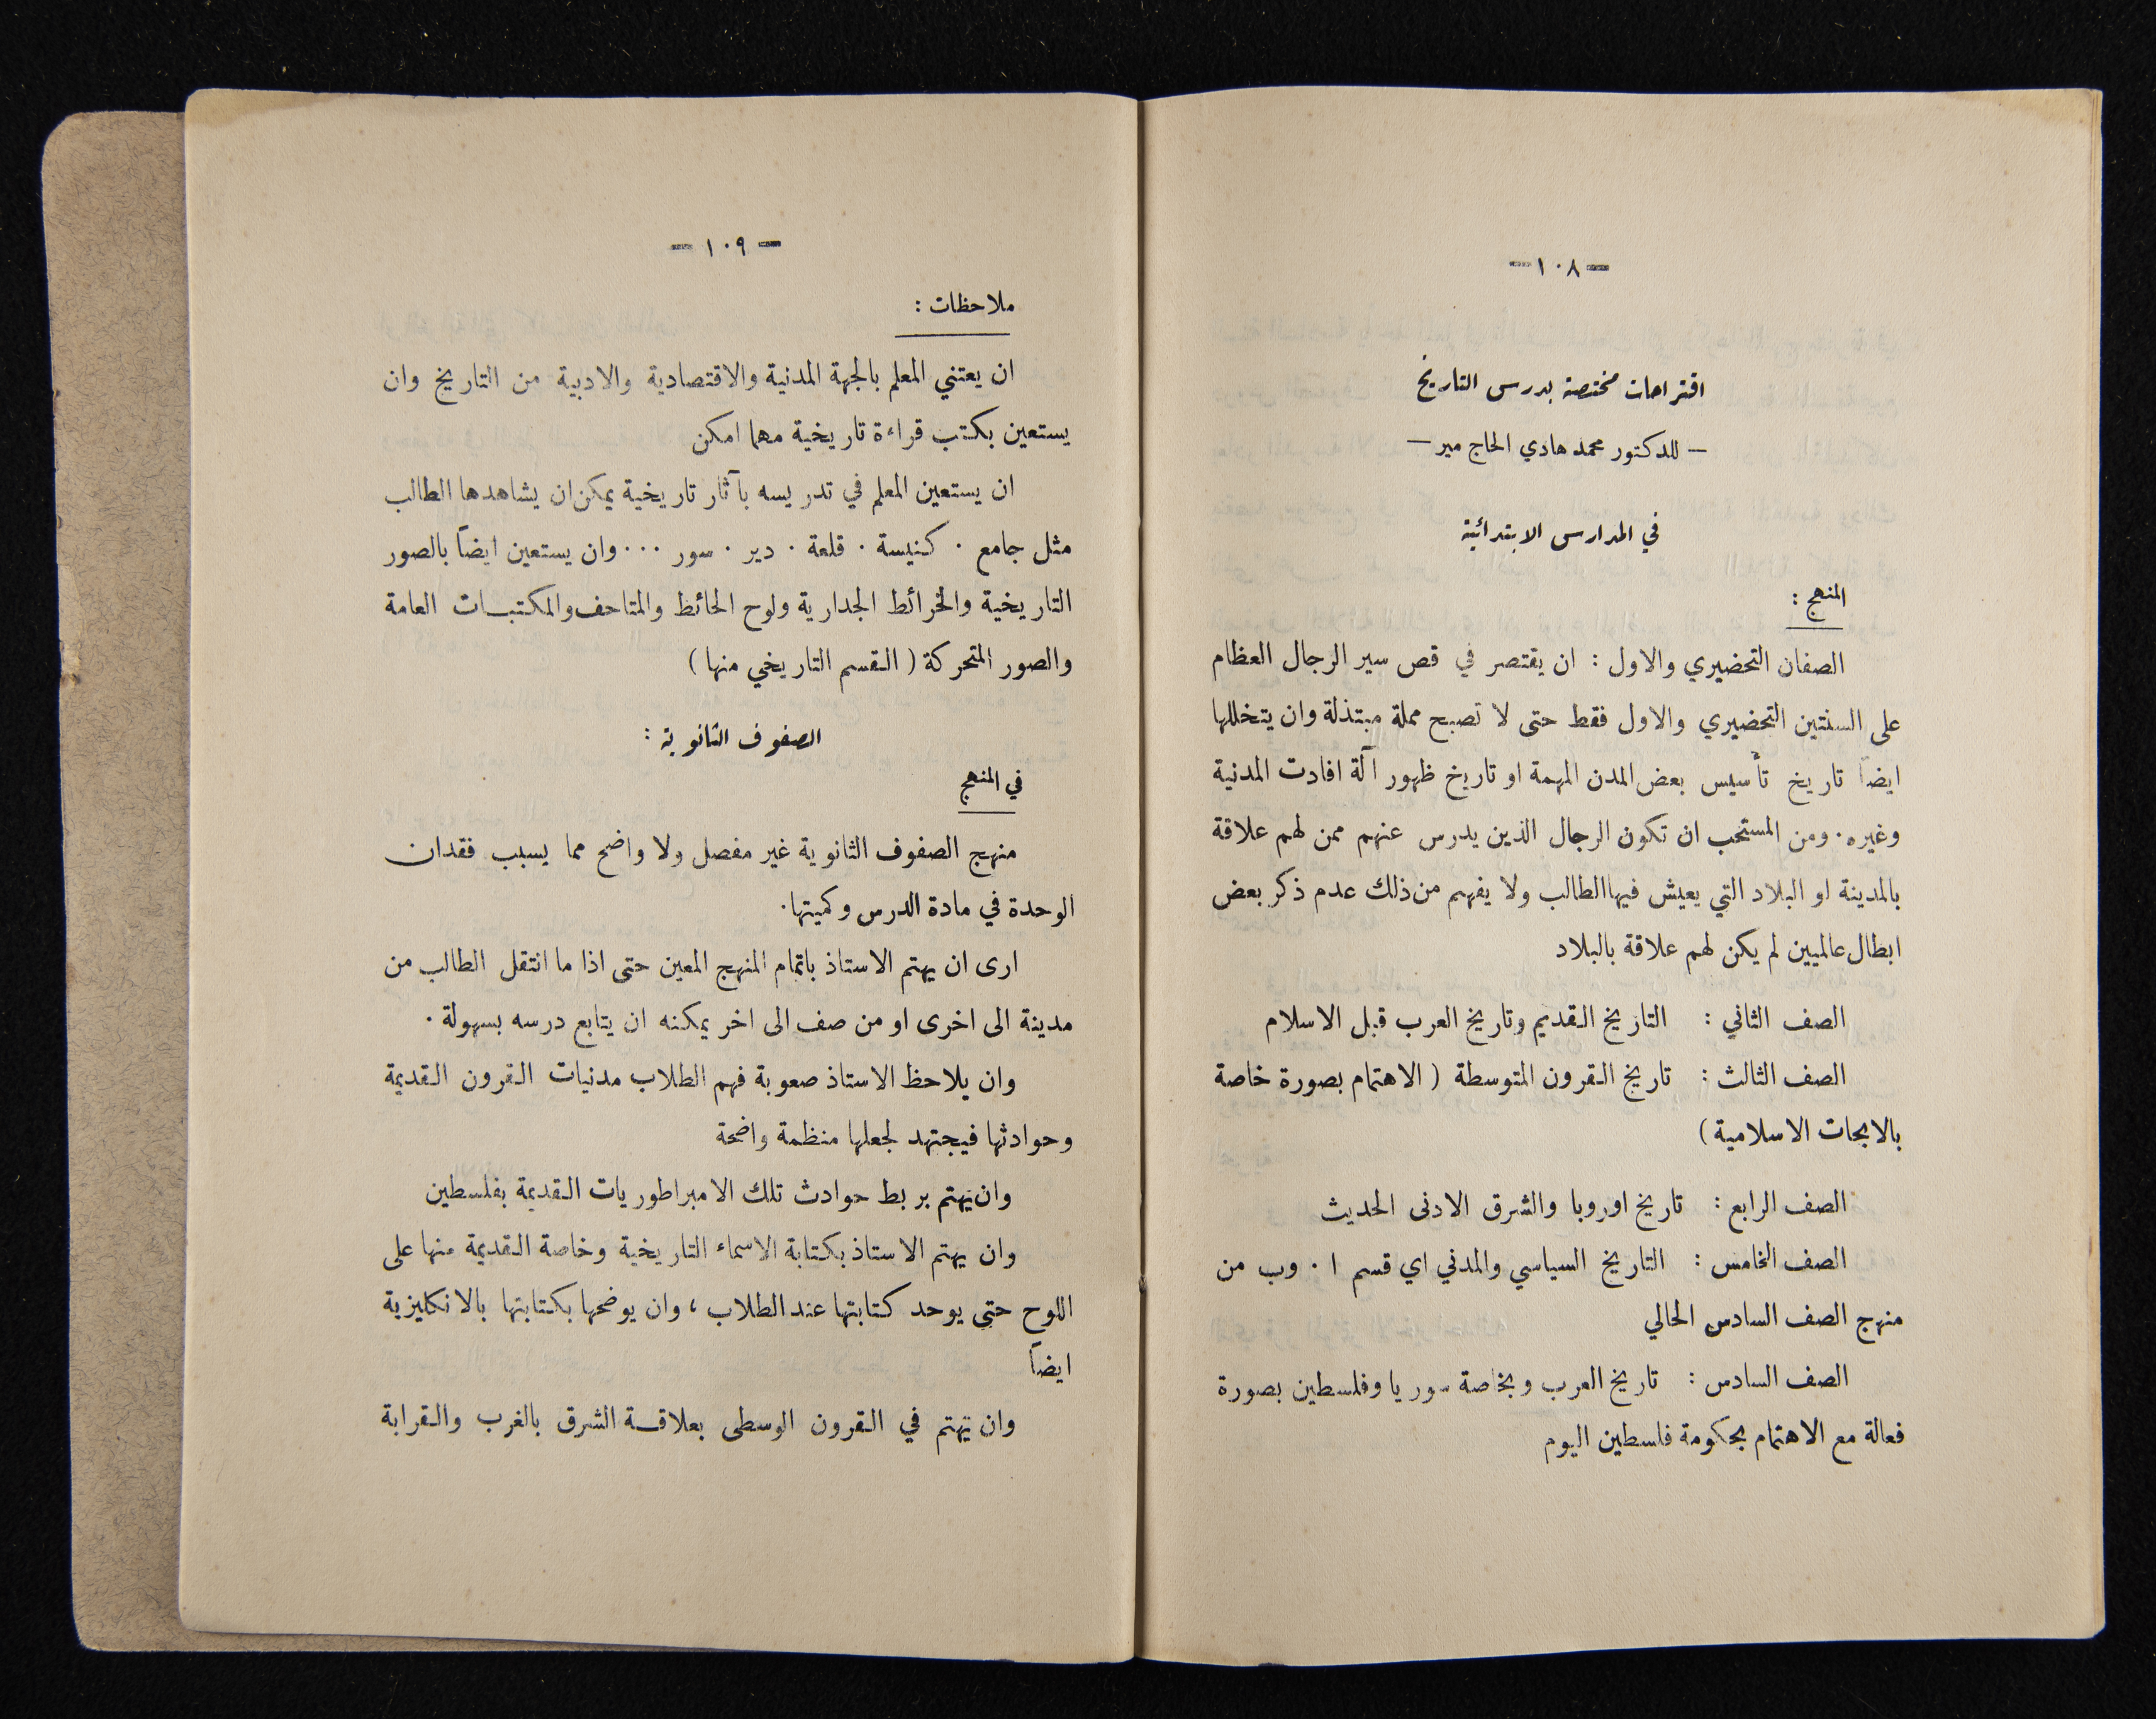 -١٠٨-
اقتراحات مختصة بدرس التاريخ
- للدكتور محمد هادي الحاج مير -
في المدارس الابتدائية
المنهج :
الصفان التحضيري والاول : ان يقتصر في قص سير الرجال العظام
على السنتين التحضيري والاول فقط حتى لا تصبح مملة مبتذلة وان يتخللها
ايضاً تاريخ تأسيس بعض المدن المهمة او تاريخ ظهور آلة افادت المدنية
وغيره . ومن المستحب ان تكون الرجال الذين يدرس عنهم ممن لهم علاقة
بالمدينة او البلاد التي يعيش فيها الطالب ولا يفهم من ذلك عدم ذكر بعض
ابطال عالميين لم يكن لهم علاقة بالبلاد
الصف الثاني : التاريخ القديم وتاريخ العرب قبل الاسلام
الصف الثالث : تاريخ القرون المتوسطة ( الاهتمام بصورة خاصة
بالابحاث الاسلامية )
الصف الرابع : تاريخ اوروبا والشرق الادنى الحديث
الصف الخامس : التاريخ السياسي والمدني اي قسم ا . وب من
منهج الصف السادس الحالي
الصف السادس : تاريخ العرب وبخاصة سوريا وفلسطين بصورة
فعالة مع الاهتمام بحكومة فلسطين اليوم
- ١٠٩ -
ملاحظات :
ان يعتني المعلم بالجهة المدنية والاقتصادية والادبية من التاريخ وان
يستعين بكتب قراءة تاريخية مهما امكن
ان يستعين المعلم في تدريسه بآثار تاريخية يمكن ان يشاهدها الطالب
مثل جامع . كنيسة . قلعة . دير . سور ... وان يستعين ايضاً بالصور
التاريخية والخرائط الجدارية ولوح الحائط والمتاحف والمكتبات العامة
والصور المتحركة ( القسم التاريخي منها )
الصفوف الثانوية :
في المنهج
منهج الصفوف الثانوية غير مفصل ولا واضح مما يسبب فقدان
الوحدة في مادة الدرس وكميتها .
ارى ان يهتم الاستاذ باتمام المنهج المعين حتى اذا ما انتقل الطالب من
مدينة الى اخرى او من صف الى اخر يمكنه ان يتابع درسه بسهولة .
وان يلاحظ الاستاذ صعوبة فهم الطلاب مدنيات القرون القديمة
وحوادثها فيجتهد لجعلها منظمة واضحة
وان يهتم بربط حوادث تلك الامبراطوريات القديمة بفلسطين
وان يهتم الاستاذ بكتابة الاسماء التاريخية وخاصة القديمة منها على
اللوح حتى يوحد كتابتها عند الطلاب ، وان يوضحها بكتابتها بالانكليزية
ايضاً
وان يهتم في القرون الوسطى بعلاقة الشرق بالغرب والقرابة